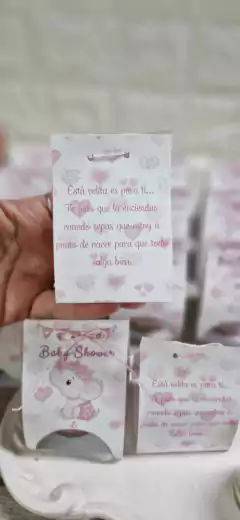 Está velita es para ti...
Te pido que la enciendas
cuando sepas que estoy a
punto de nacer para que todo
salga bien...
Baby Shower
Está velita es para ti...
Te pido que la enciendas
cuando sepas que estoy a
punto de nacer para que todo
salga bien...